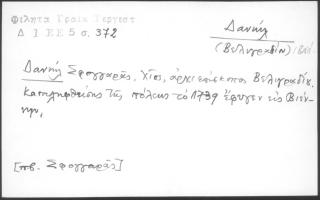 Φίλητα Γραικ Τεργεστ
Δ 1 ΕΕ 5 σ. 372
Δανιήλ
(Βελιγραδίου)
Δανιήλ Σφογγαρᾶς, Χῖος, ἀρχιεπίσκοπος Βελιγραδίου.
Καταληφθείσης τῆς πόλεως τὸ 1739 ἔφυγεν εἰς Βιέν-
νην.
[πβ. Σφογγαρᾶς]